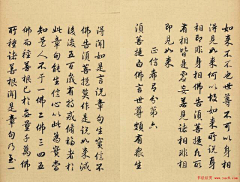 如来不不也世尊不可以身相
得見如來何以故如來所說身
相即非身相佛告須菩提凡所
有相皆是虛妄若見諸相非相
即見如來
正信希有分第六
須菩提白佛言世尊頗有眾生
得聞如是言說章句生實信不
佛告須菩提莫作是說如來滅
後後五百歲有持戒修福者於
此章句能生信心以此為實當
知是人不於一佛二佛三四五
佛而種善根已於無量千萬佛
所種諸善根聞是章句乃至